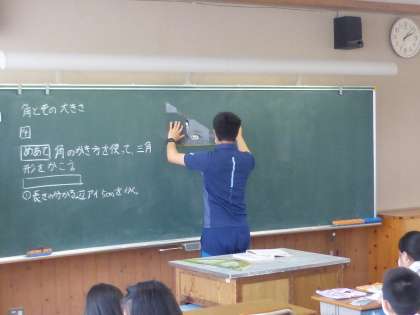 角とその大きさ
めあて 角のかき方を使って、三角
形をかこう
①長さが分かる辺アイ5cmをかく。